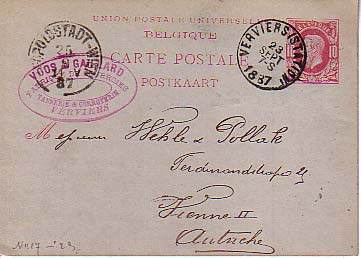 UNION POSTALE UNIVERSELLE
BELGIQUE
CARTE POSTALE
POSTKAART
VERVIERS (STATION)
23
SEPT
7-S
1887
10
25
87
VOOS
TANNERIE & CORROYERIE
VERVIERS
Messieurs Wehle & Pollak
Ferdinandstrasse
Vienne II
Autriche